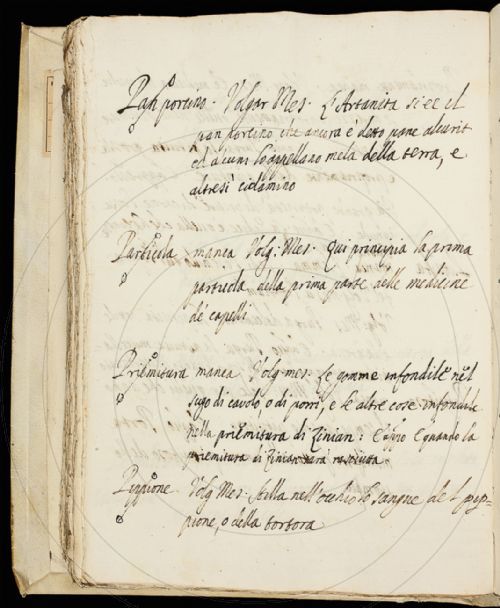 Pan porcino. Volgar Mes. L'Artanita si è il
pan porcino che ancora è detto pane
ed alcuni l'appellano mela della terra, e
altresì ciclamino
Particola manca Volg: Mes. Qui principia la prima
particola della prima parte delle medicine
de' capelli
Priemitura manca Volg. mes. Le gomme infondile nel
sugo di cavolo, o di porri, e le altre cose infondile
nella priemitura di Zinian: e quando la
priemitura di Zinian sarà
Pippione Volg Mes. stilla nell'occhio lo sangue del pip-
pione, o della tortora